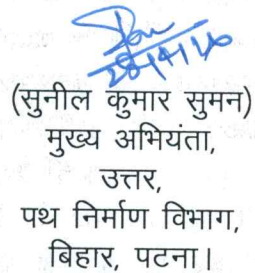 28/4/26
(सुनील कुमार सुमन)
मुख्य अभियंता,
उत्तर,
पथ निर्माण विभाग,
बिहार, पटना।